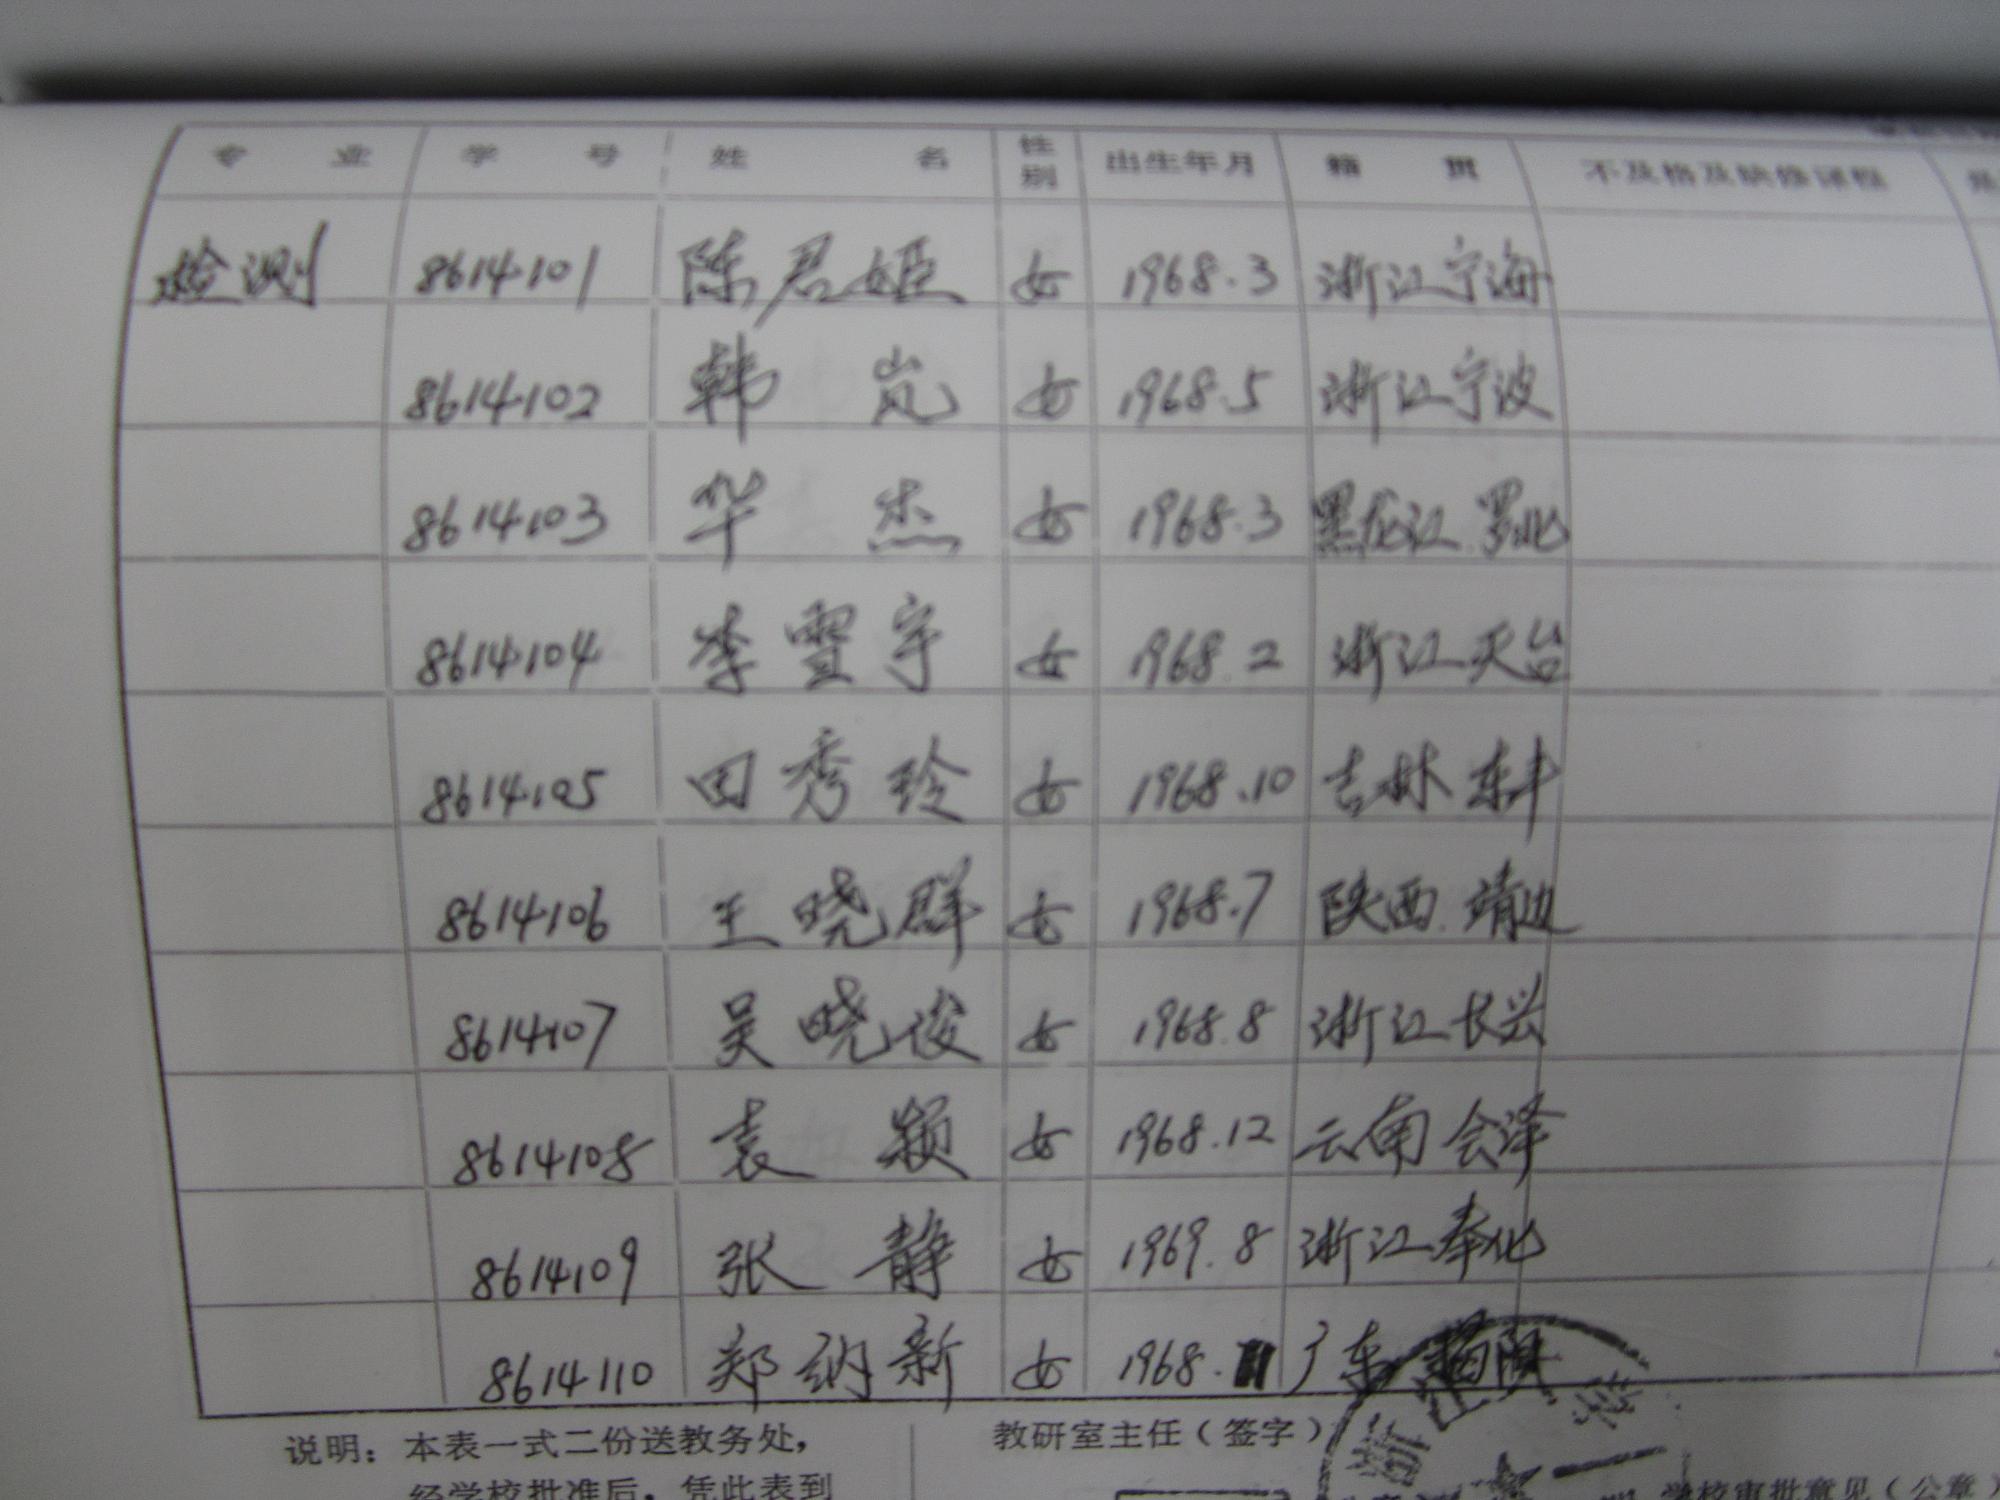 专业 学号 姓名 性别 出生年月 籍贯 不及格及缺修课程 是
检测 8614101 陈君姬 女 1968.3 浙江宁海
8614102 韩岚 女 1968.5 浙江宁波
8614103 华杰 女 1968.3 黑龙江.罗北
8614104 李雪宇 女 1968.2 浙江天台
8614105 田秀玲 女 1968.10 吉林东丰
8614106 王晓群 女 1968.7 陕西.靖边
8614107 吴晓俊 女 1968.8 浙江长兴
8614108 袁颖 女 1968.12 云南会泽
8614109 张静 女 1969.8 浙江奉化
8614110 郑纳新 女 1968.11 广东揭阳
说明：本表一式二份送教务处， 教研室主任（签字）
经学校批准后，凭此表到 学校审批意见（公章）